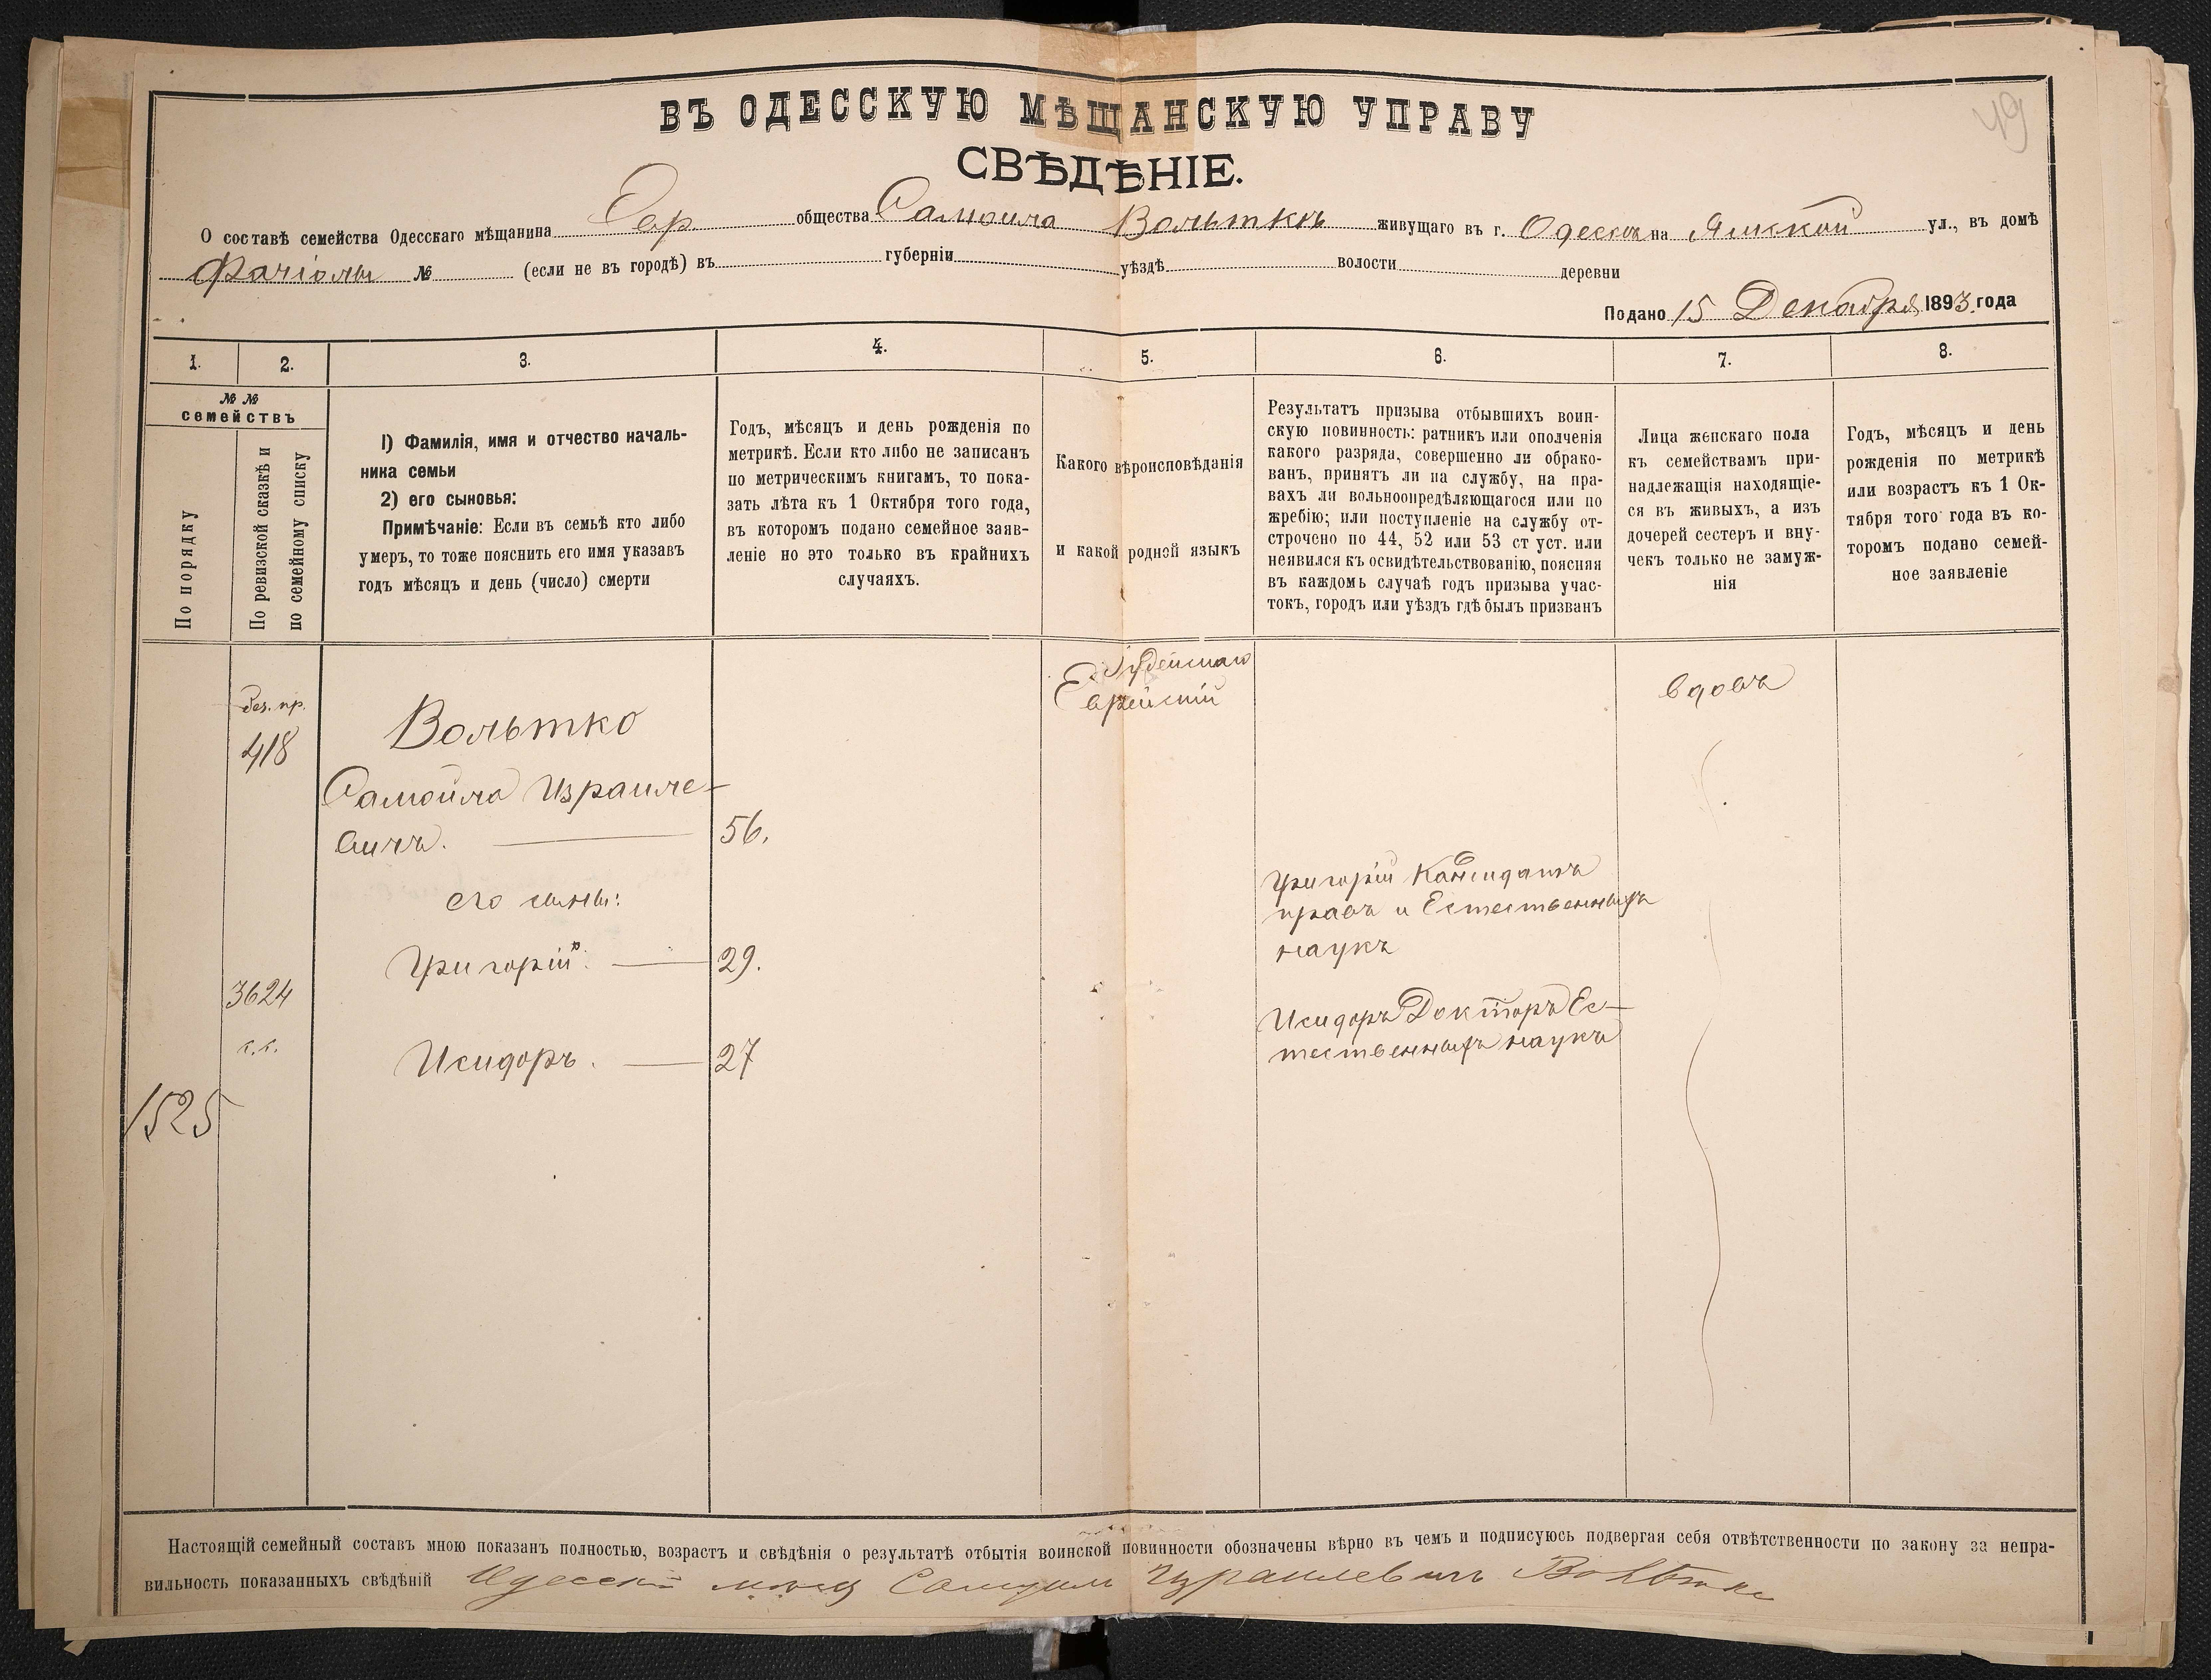 49
ВЪ ОДЕССКУЮ МѢЩАНСКУЮ УПРАВУ
СВѢДѢНІЕ.
О составѣ семейства Одесскаго мѣщанина Евр общества Самоила Вольтке живущаго въ г. Одессѣ на Ямской ул., въ домѣ
№ (если не въ городѣ) въ губерніи уѣздѣ волости деревни
Подано 15 Декабря 1893 года
1. 2. 3. 4. 5. 6. 7. 8.
№ №
семействъ
По порядку
По ревизской сказкѣ и
по семейному списку
1) Фамилія, имя и отчество началь-
ника семьи
2) его сыновья:
Примѣчаніе: Если въ семьѣ кто либо
умеръ, то тоже пояснить его имя указавъ
годъ мѣсяцъ и день (число) смерти
Годъ, мѣсяцъ и день рожденія по
метрикѣ. Если кто либо не записанъ
по метрическимъ книгамъ, то пока-
зать лѣта къ 1 Октября того года,
въ которомъ подано семейное заяв-
леніе но это только въ крайнихъ
случаяхъ.
Какого вѣроисповѣданія
и какой родной языкъ
Результатъ призыва отбывшихъ воин-
скую повинность: ратникъ или ополченія
какого разряда, совершенно ли обрако-
ванъ, принятъ ли на службу, на пра-
вахъ ли вольноопредѣляющагося или по
жребію; или поступленіе на службу от-
строчено по 44, 52 или 53 ст уст. или
неявился къ освидѣтельствованію, поясняя
въ каждомъ случаѣ годъ призыва учас-
токъ, городъ или уѣздъ гдѣ былъ призванъ
Лица женскаго пола
къ семействамъ при-
надлежащія находящіе-
ся въ живыхъ, а изъ
дочерей сестеръ и вну-
чекъ только не замуж-
нія
Годъ, мѣсяцъ и день
рожденія по метрикѣ
или возрастъ къ 1 Ок-
тября того года въ ко-
торомъ подано семей-
ное заявленіе
Іудейскаго
Еврейскій
вдовъ
без. пр.
418
Вольтко
Самойло Израиле-
вичъ. 56.
его сыны:
Григорій 29.
Григорій Кандидатъ
правъ и Естественныхъ
наукъ
3624
с.с.
Исидоръ. 27
Исидоръ Докторъ Ес-
тественныхъ наукъ
1525
Настоящій семейный составъ мною показанъ полностью, возрастъ и свѣдѣнія о результатѣ отбытія воинской повинности обозначены вѣрно въ чемъ и подписуюсь подвергая себя отвѣтственности по закону за непра-
вильность показанныхъ свѣдѣній Одесскій мѣщ Самуил Израилевич Вольтке